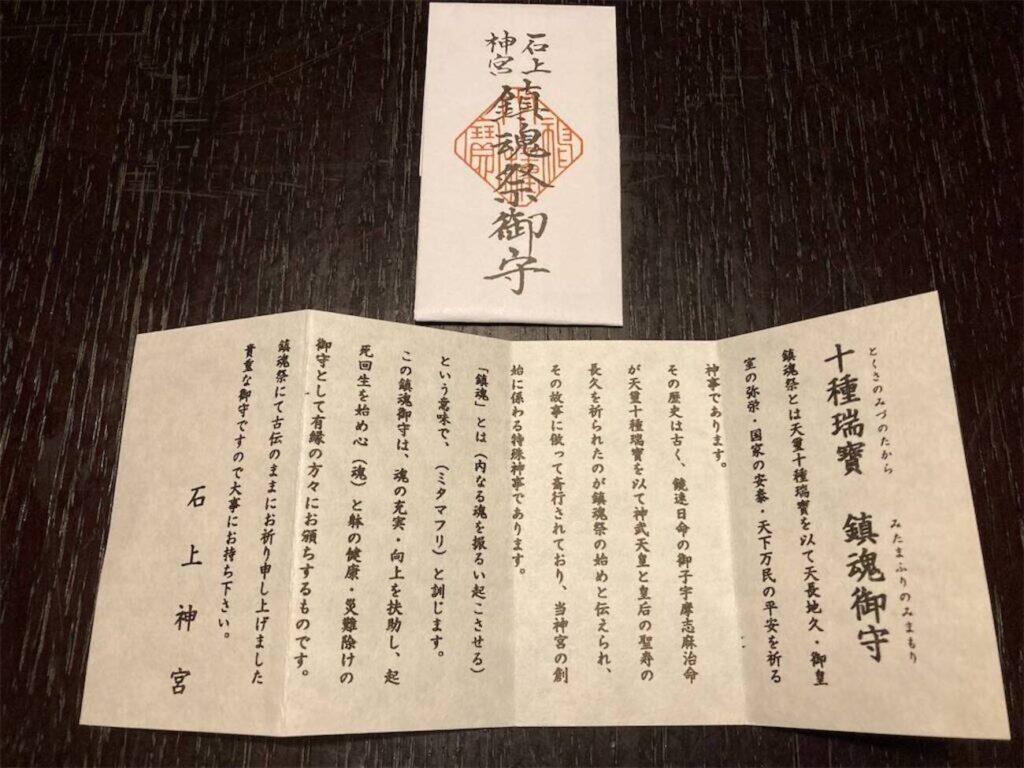 石上
神宮
鎮魂祭御守
とくさのみづのたから　みたまふりのみまもり
十種瑞寶　鎮魂御守
鎮魂祭とは天璽十種瑞寶を以て天長地久・御皇
室の弥栄・国家の安泰・天下万民の平安を祈る
神事であります。
その歴史は古く、饒速日命の御子宇摩志麻治命
が天璽十種瑞寶を以て神武天皇と皇后の聖寿の
長久を祈られたのが鎮魂祭の始めと伝えられ、
その故事に倣って斎行されており、当神宮の創
始に係わる特殊神事であります。
「鎮魂」とは（内なる魂を振るい起こさせる）
という意味で、（ミタマフリ）と訓じます。
この鎮魂御守は、魂の充実・向上を扶助し、起
死回生を始め心（魂）と躰の健康・災難除けの
御守として有縁の方々にお頒ちするものです。
鎮魂祭にて古伝のままにお祈り申し上げました
貴重な御守ですので大事にお持ち下さい。
石上神宮